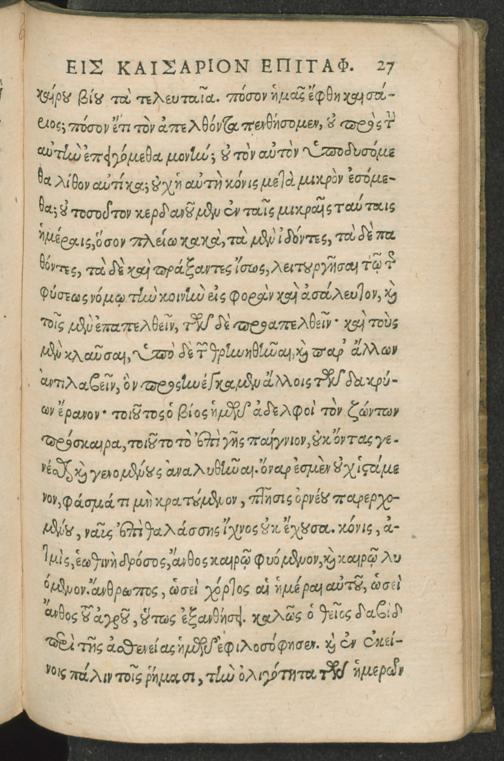 ΕΙΣ ΚΑΙΣΑΡΙΟΝ ΕΠΙΤΑΦ. 27
καίρου βίου τὰ τελευταῖα. πόσον ἡμᾶς ἔφθη καισά-
ριος; πόσον ἔτι τὸν ἀπελθόντα πενθήσομεν, οὐ πρὸς τὴν
αὐτὴν ἐπειγόμεθα μονὴν; οὐ τὸν αὐτὸν ὑποδυσόμε
θα λίθον αὐτίκα; οὐχ ἡ αὐτὴ κόνις μετὰ μικρὸν ἐσόμε-
θα; οὐ τοσοῦτον κερδανοῦμεν ἐν ταῖς μικραῖς ταύταις
ἡμέραις, ὅσον πλείω κακὰ, τὰ μὲν ἰδόντες, τὰ δὲ πα
θόντες, τὰ δὲ καὶ πράξαντες ἴσως, λειτουργῆσαι τῷ τῆς
φύσεως νόμῳ τὴν κοινὴν εἰς φορὰν καὶ ἀσάλευτον, καὶ
τοῖς μὲν ἐπαπελθεῖν, τῶν δὲ προαπελθεῖν· καὶ τοὺς
μὲν κλαῦσαι, ὑπὸ δὲ τῶν θρηνηθῆναι, καὶ παρ' ἄλλων
ἀντιλαβεῖν, ὃν προσηνέγκαμεν ἄλλοις τῶν δακρύ-
ων ἔρανον· τοιοῦτος ὁ βίος ἡμῶν ἀδελφοὶ τὸν ζώντων
πρόσκαιρα, τοιοῦτο τὸ ἐπὶ γῆς παίγνιον, οὐκ ὄντας γε-
νέσθαι, καὶ γενομένους ἀναλυθῆναι. ὄναρ ἐσμὲν οὐχ ἱστάμε
νον, φάσμά τι μὴ κρατούμενον, πτῆσις ὀρνέου παρερχο-
μένου, ναῦς ἐπὶ θαλάσσης ἴχνος οὐκ ἔχουσα. κόνις, ἀ-
τμὶς, ἑωθινὴ δρόσος, ἄνθος καιρῷ φυόμενον, καὶ καιρῷ λυ
όμενον. ἄνθρωπος, ὡσεὶ χόρτος αἱ ἡμέραι αὐτοῦ, ὡσεὶ
ἄνθος τοῦ ἀγροῦ, οὕτως ἐξανθήσει. καλῶς ὁ θεῖος δαβὶδ
περὶ τῆς ἀσθενείας ἡμῶν ἐφιλοσόφησεν. καὶ ἐν ἐκεί-
νοις πάλιν τοῖς ῥήμασι, τὴν ὀλιγότητα τῶν ἡμερῶν